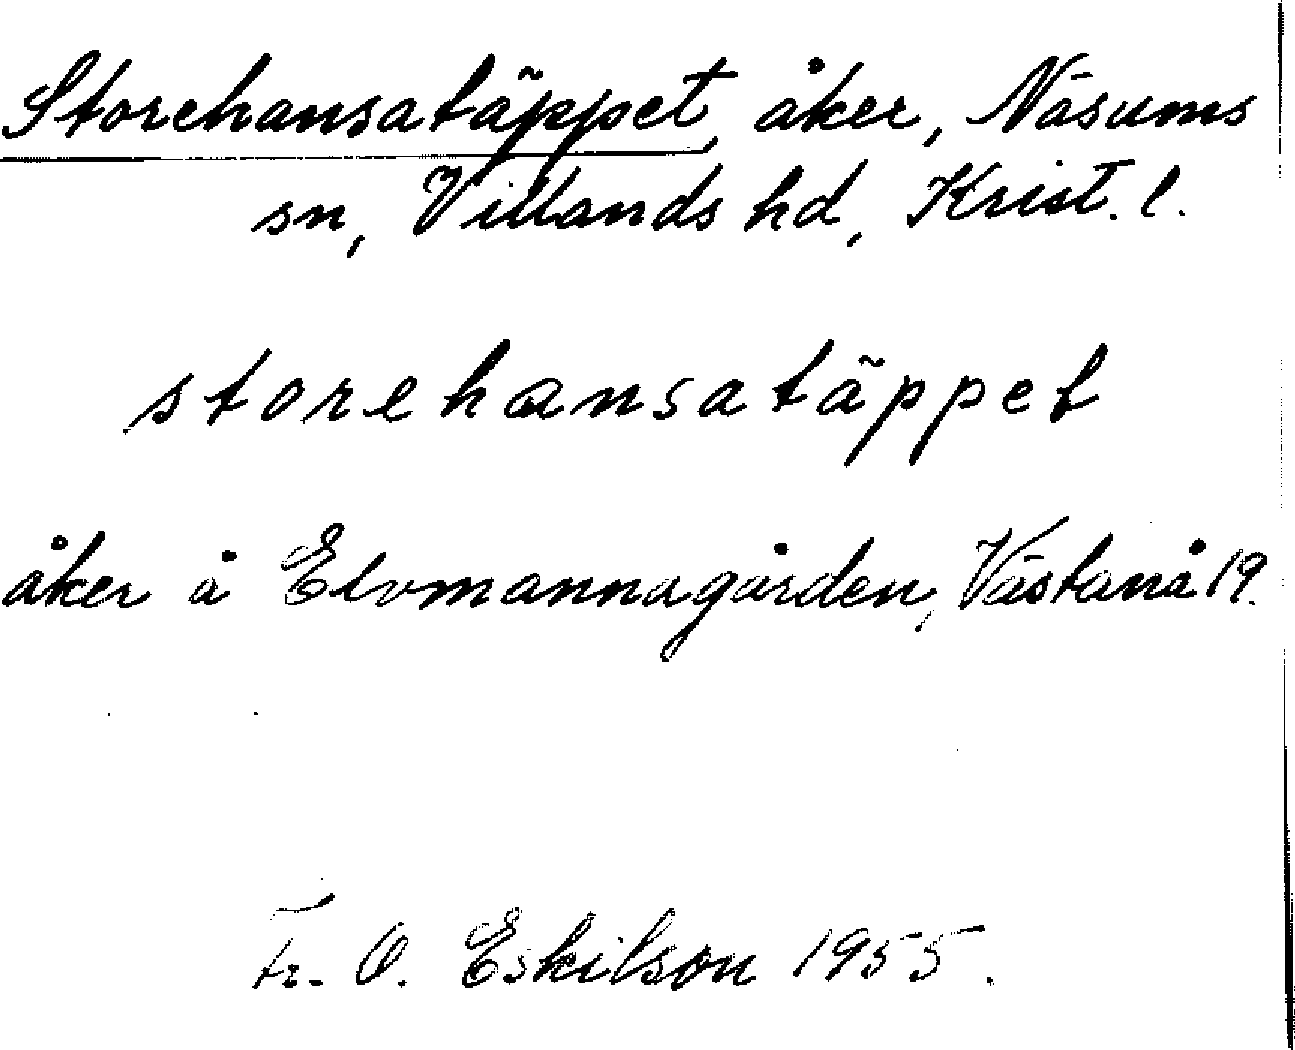 Storehansatäppet, åker, Näsums
sn, Villands hd, Krist. l.
storehansatäppet
åker å Elvmannagården, Västanå 19.
Fr. O. Eskilson 1955.